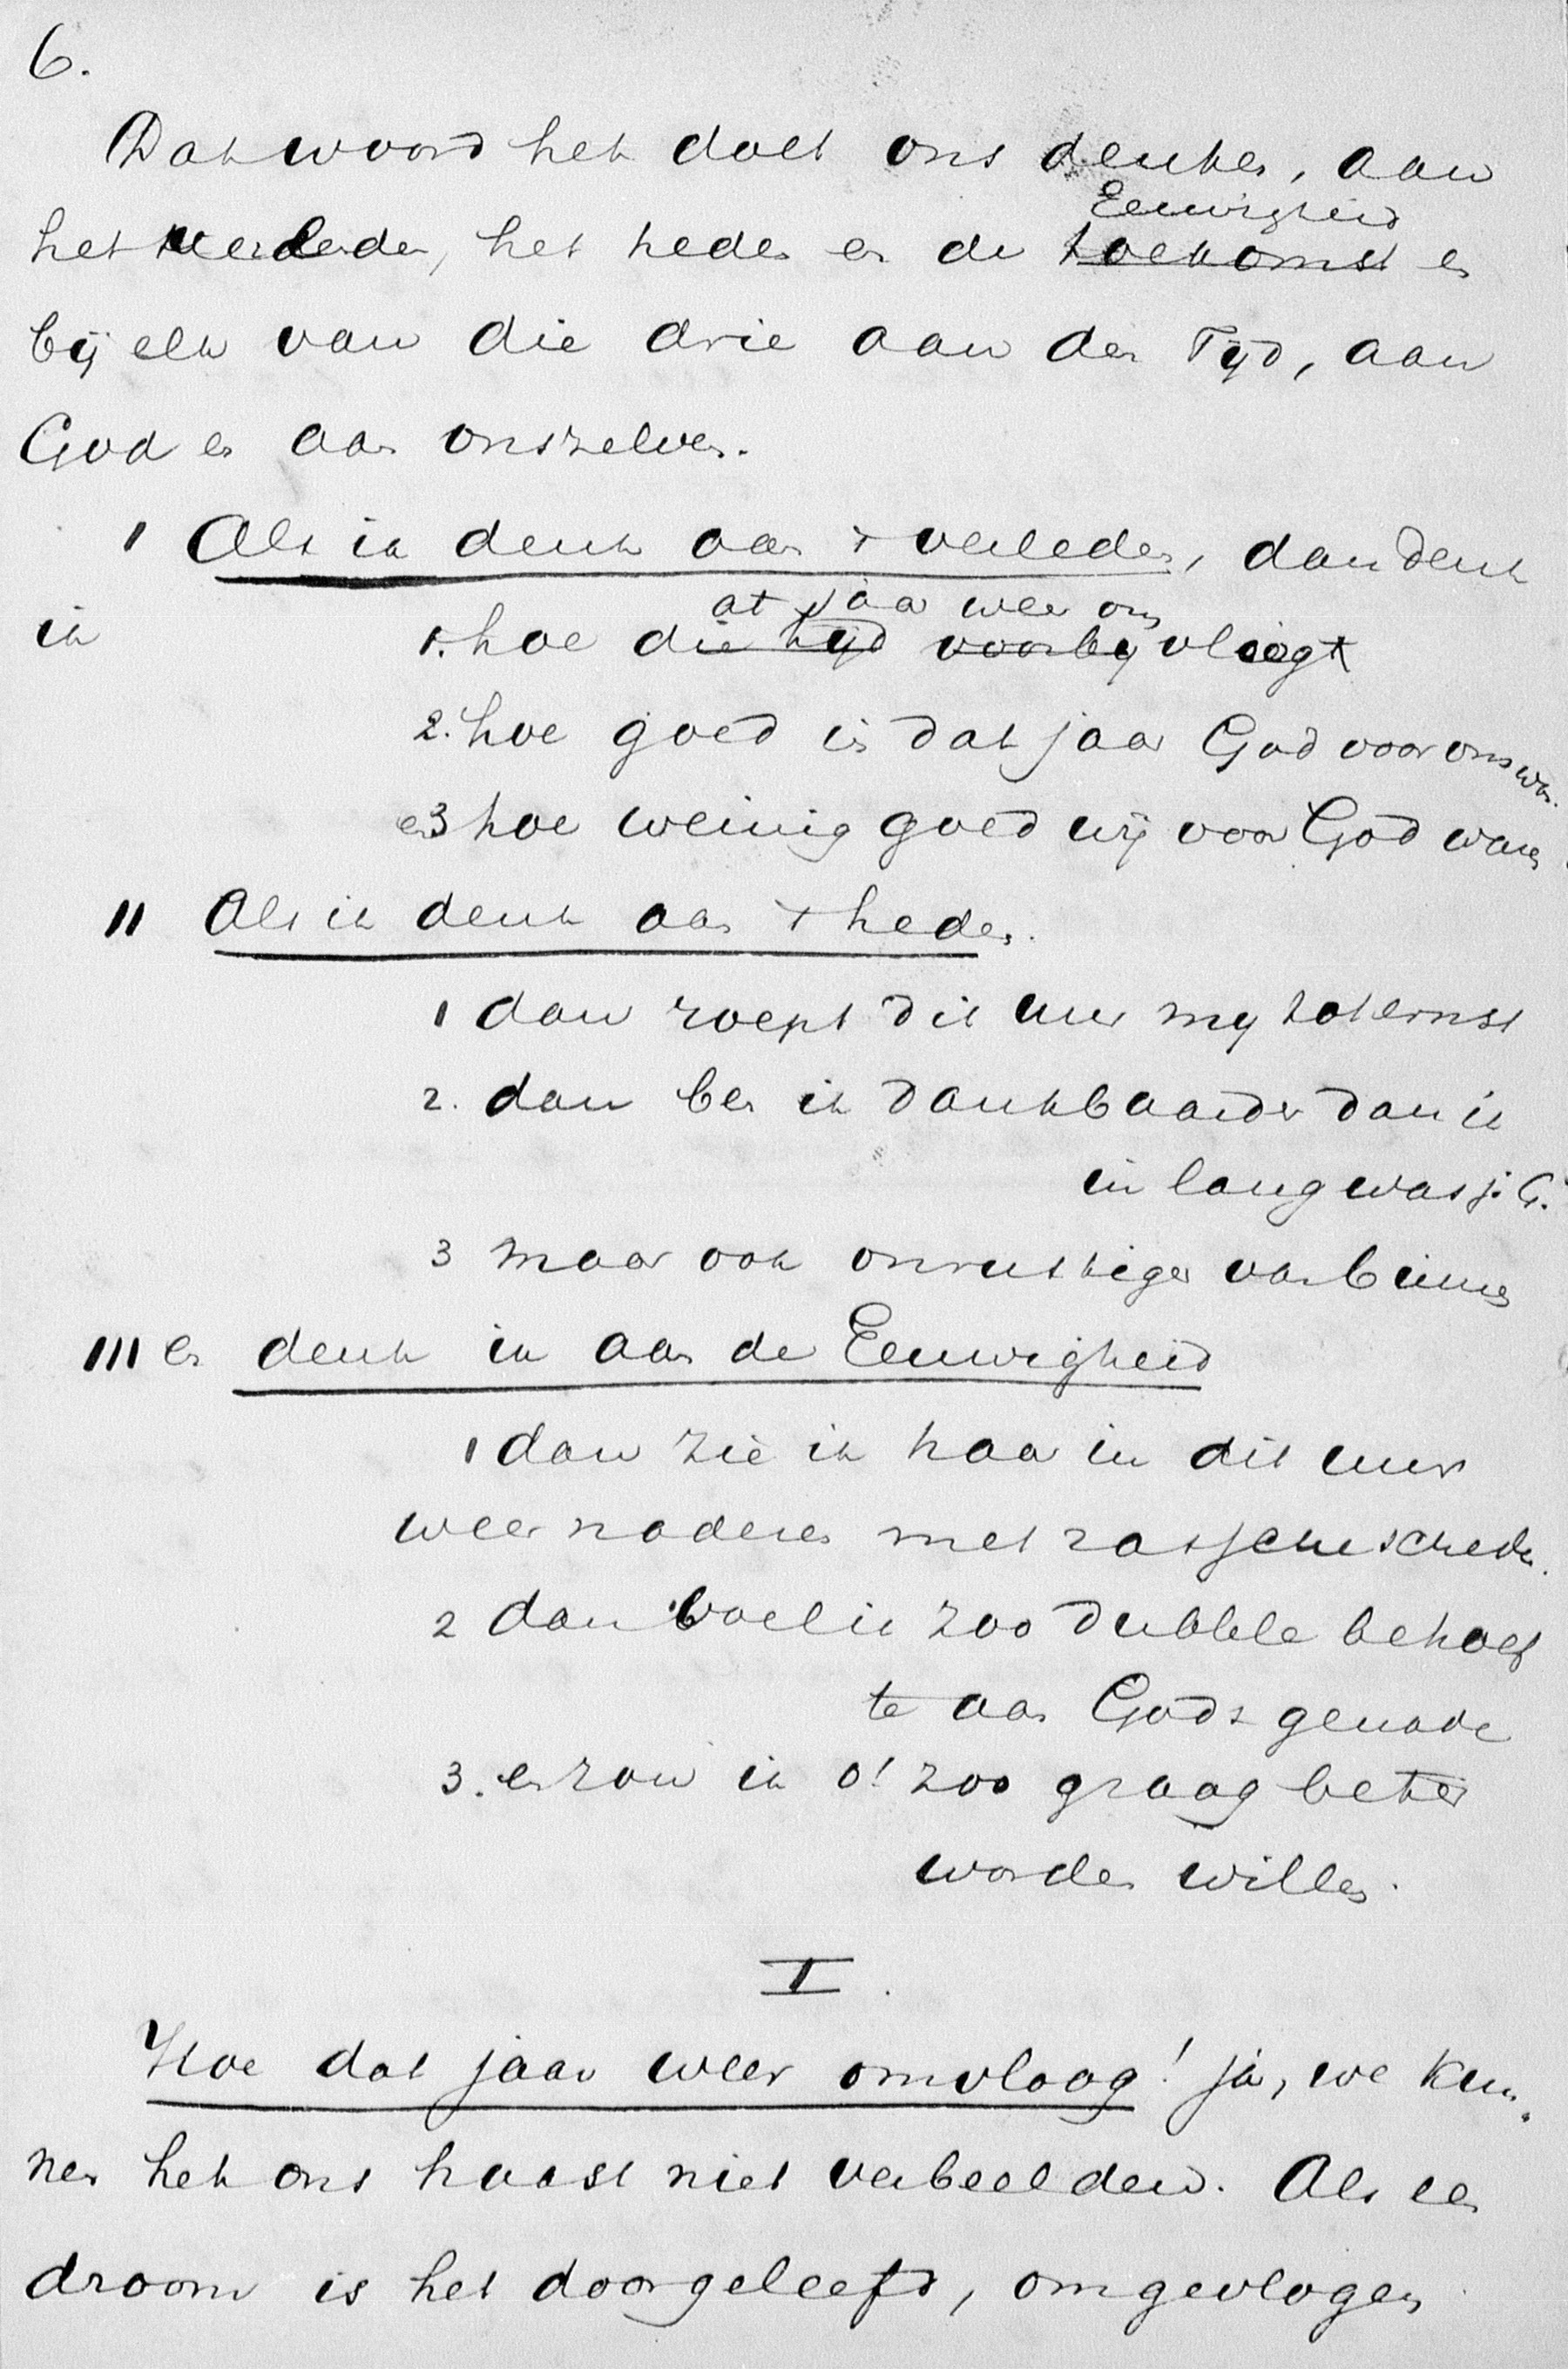 6.
Dat woord het doet ons denken, aan
het verleden, het heden en de toekomst Eeuwigheid en
bij elk van die drie aan den Tijd, aan
God en aan onszelven.
I Als ik denk aan 't verleden, dan denk
ik 1. hoe die tijd voorbij vliegt at jaar weer om
2. hoe goed in dat jaar God voor ons was.
en 3 hoe weinig goed wij voor God waren
II Als ik denk aan 't heden.
1 dan roept dit uur mij tot ernst
2. dan ben ik dankbaarder dan ik
in lang was j. G.
3 maar ook onrustiger van binnen
III en denk ik aan de Eeuwigheid
1 dan zie ik haar in dit uur
weer naderen met rassche schreden.
2 dan voel ik zoo dubbele behoef
te aan Gods genade
3. en zou ik o! zoo graag beter
worden willen.
I.
Hoe dat jaar weer omvloog! ja, we kun-
nen het ons haast niet verbeelden. Als een
droom is het doorgeleefd, omgevlogen